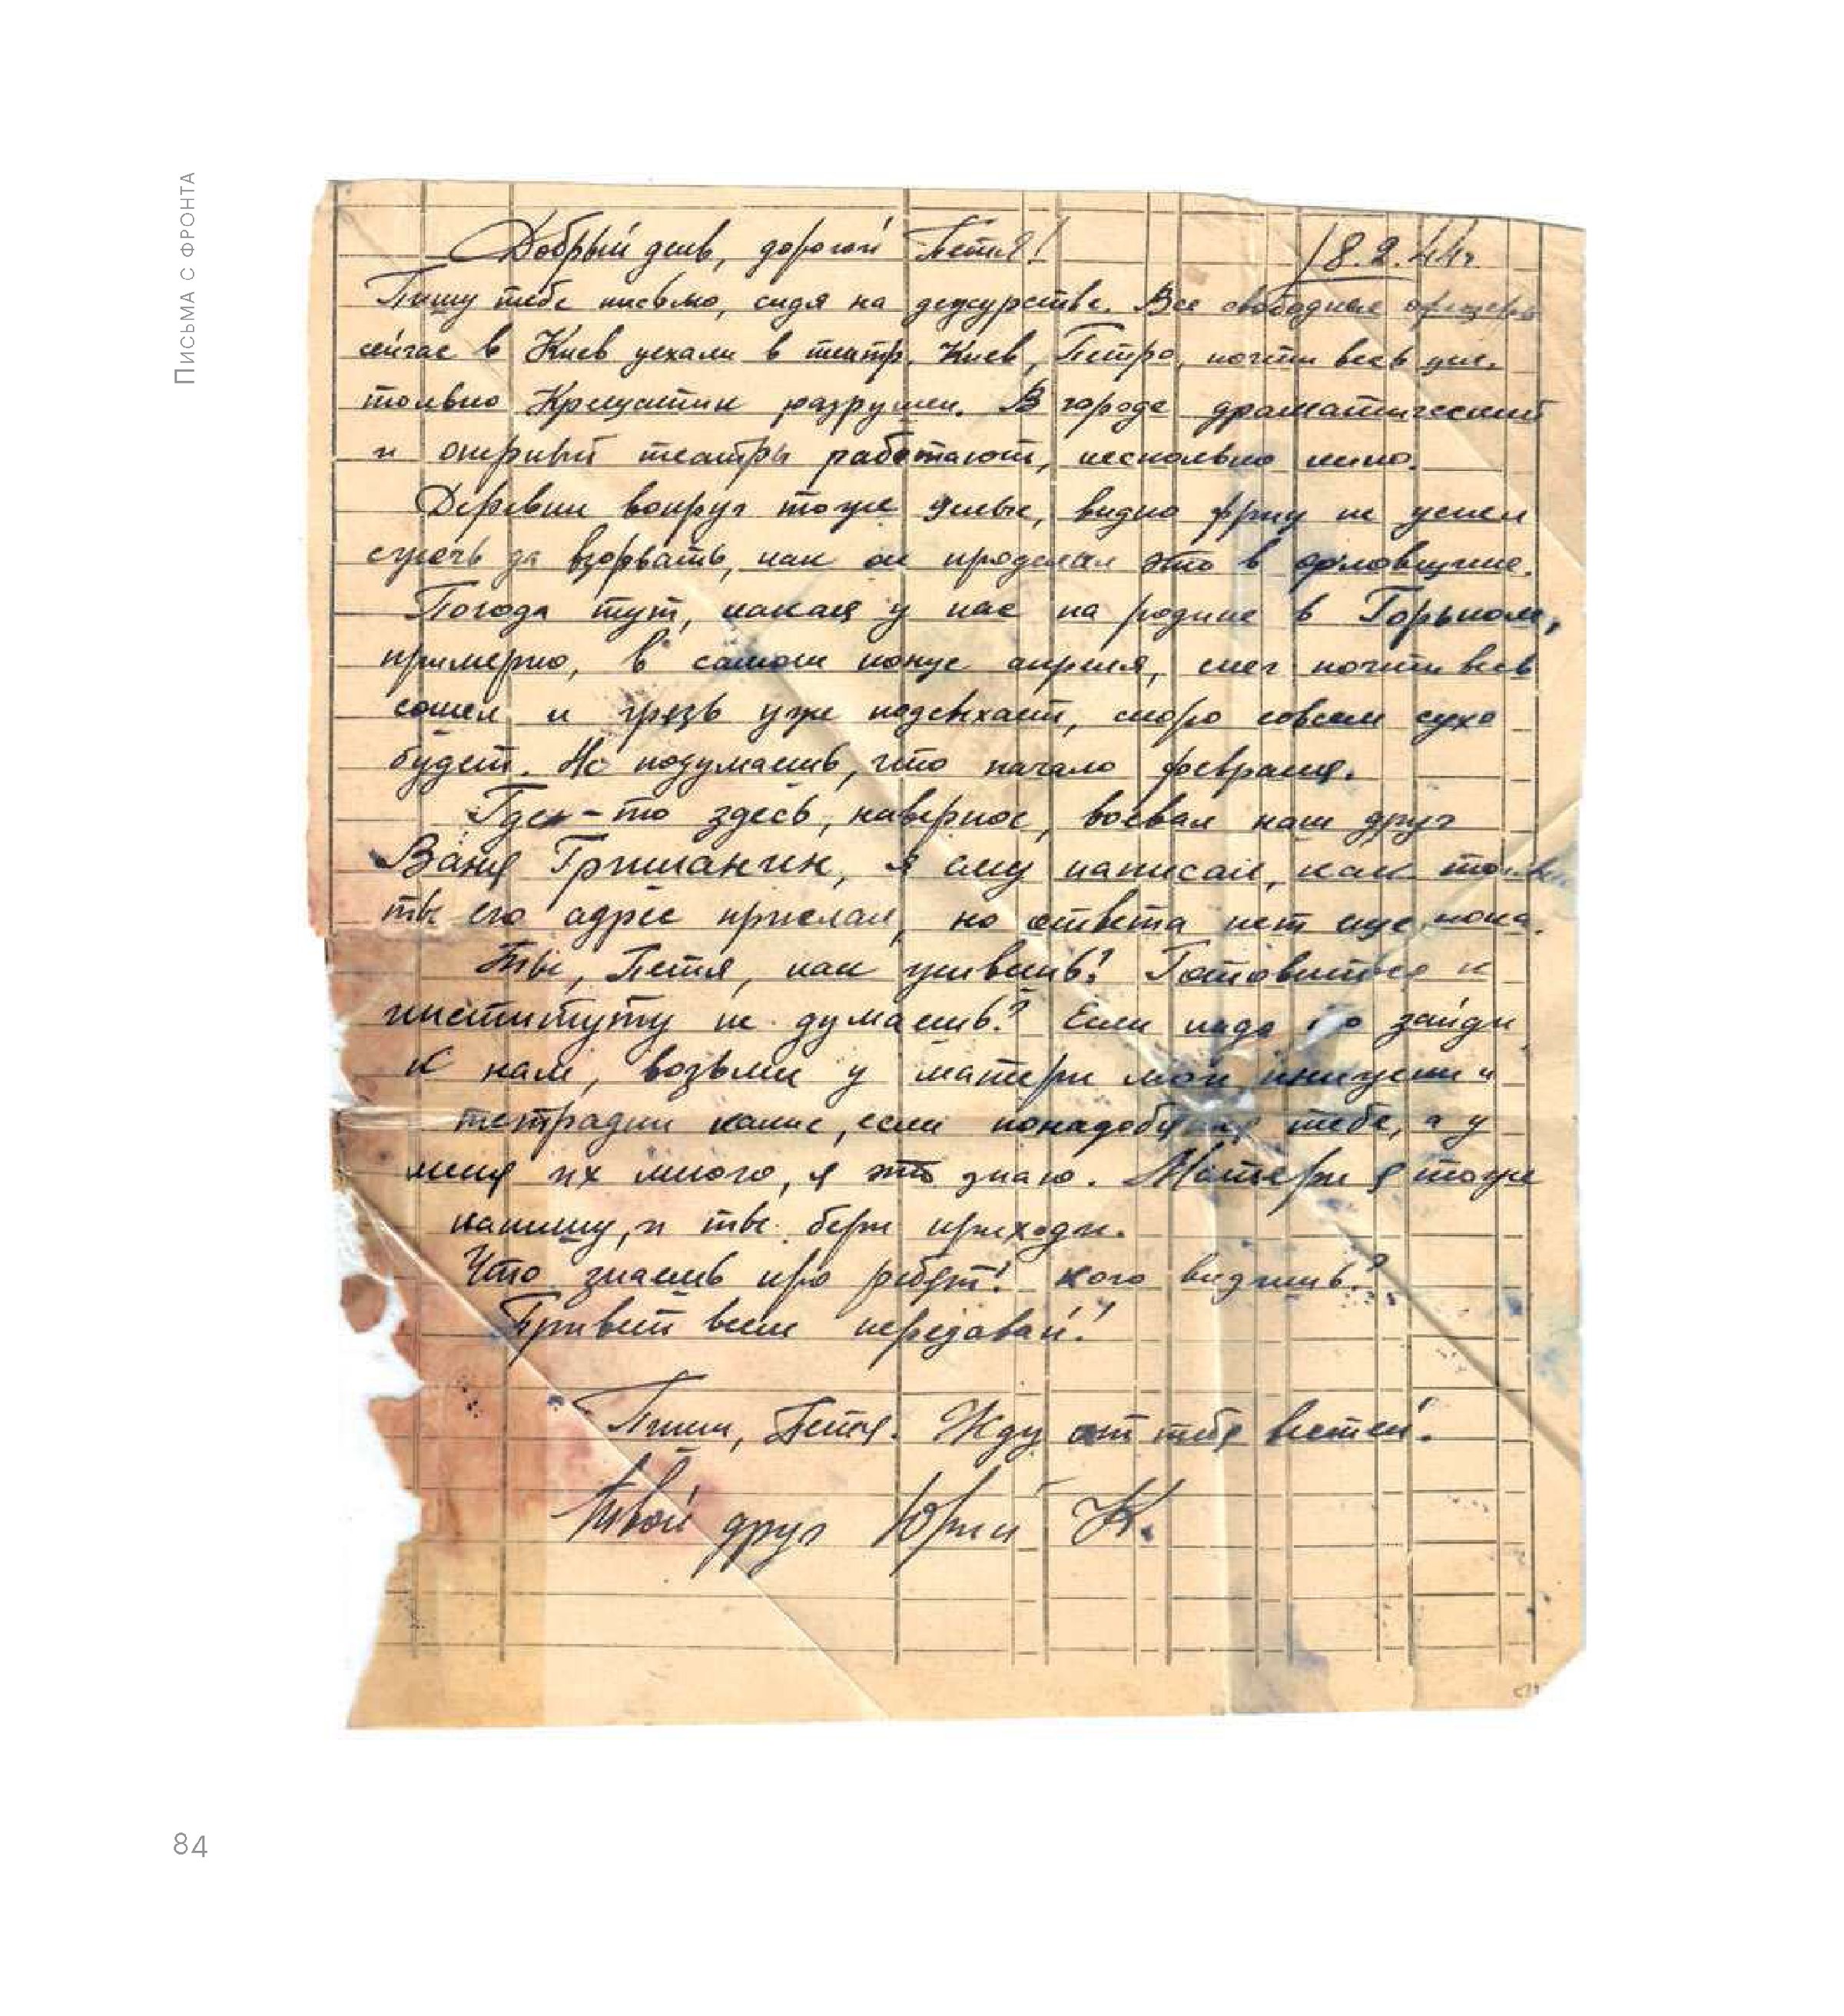 Письма с фронта
Добрый день, дорогой Петя! 8.2.44г.
Пишу тебе письмо, сидя на дежурстве. Все свободные офицеры
сейчас в Киев уехали в театр. Киев, Петро, почти весь цел,
только Крещатик разрушен. В городе драматический
и оперный театры работают, несколько кино.
Деревни вокруг тоже целые, видно фриц не успел
сжечь да взорвать, как он проделал это в орловщине.
Погода тут, какая у нас на родине в Горьком,
примерно, в самом конце апреля, снег почти весь
сошел и грязь уже подсыхает, скоро совсем сухо
будет. Не подумаешь, что начало февраля.
Где-то здесь, наверное, воевал наш друг
Ваня Гришанин, я ему написал, как только
ты его адрес прислал, но ответа нет еще пока.
Ты, Петя, как живешь? Готовиться к
институту не думаешь? Если надо зайди
к нам, возьми у матери мои книжки и
тетрадки какие, если понадобятся тебе, а у
меня их много, я это знаю. Матери я тоже
напишу, и ты бери приходи.
Что знаешь про ребят? кого видишь?
Привет всем передавай!
Пиши, Петя. Жду от тебя вестей.
Твой друг Юрий К.
84